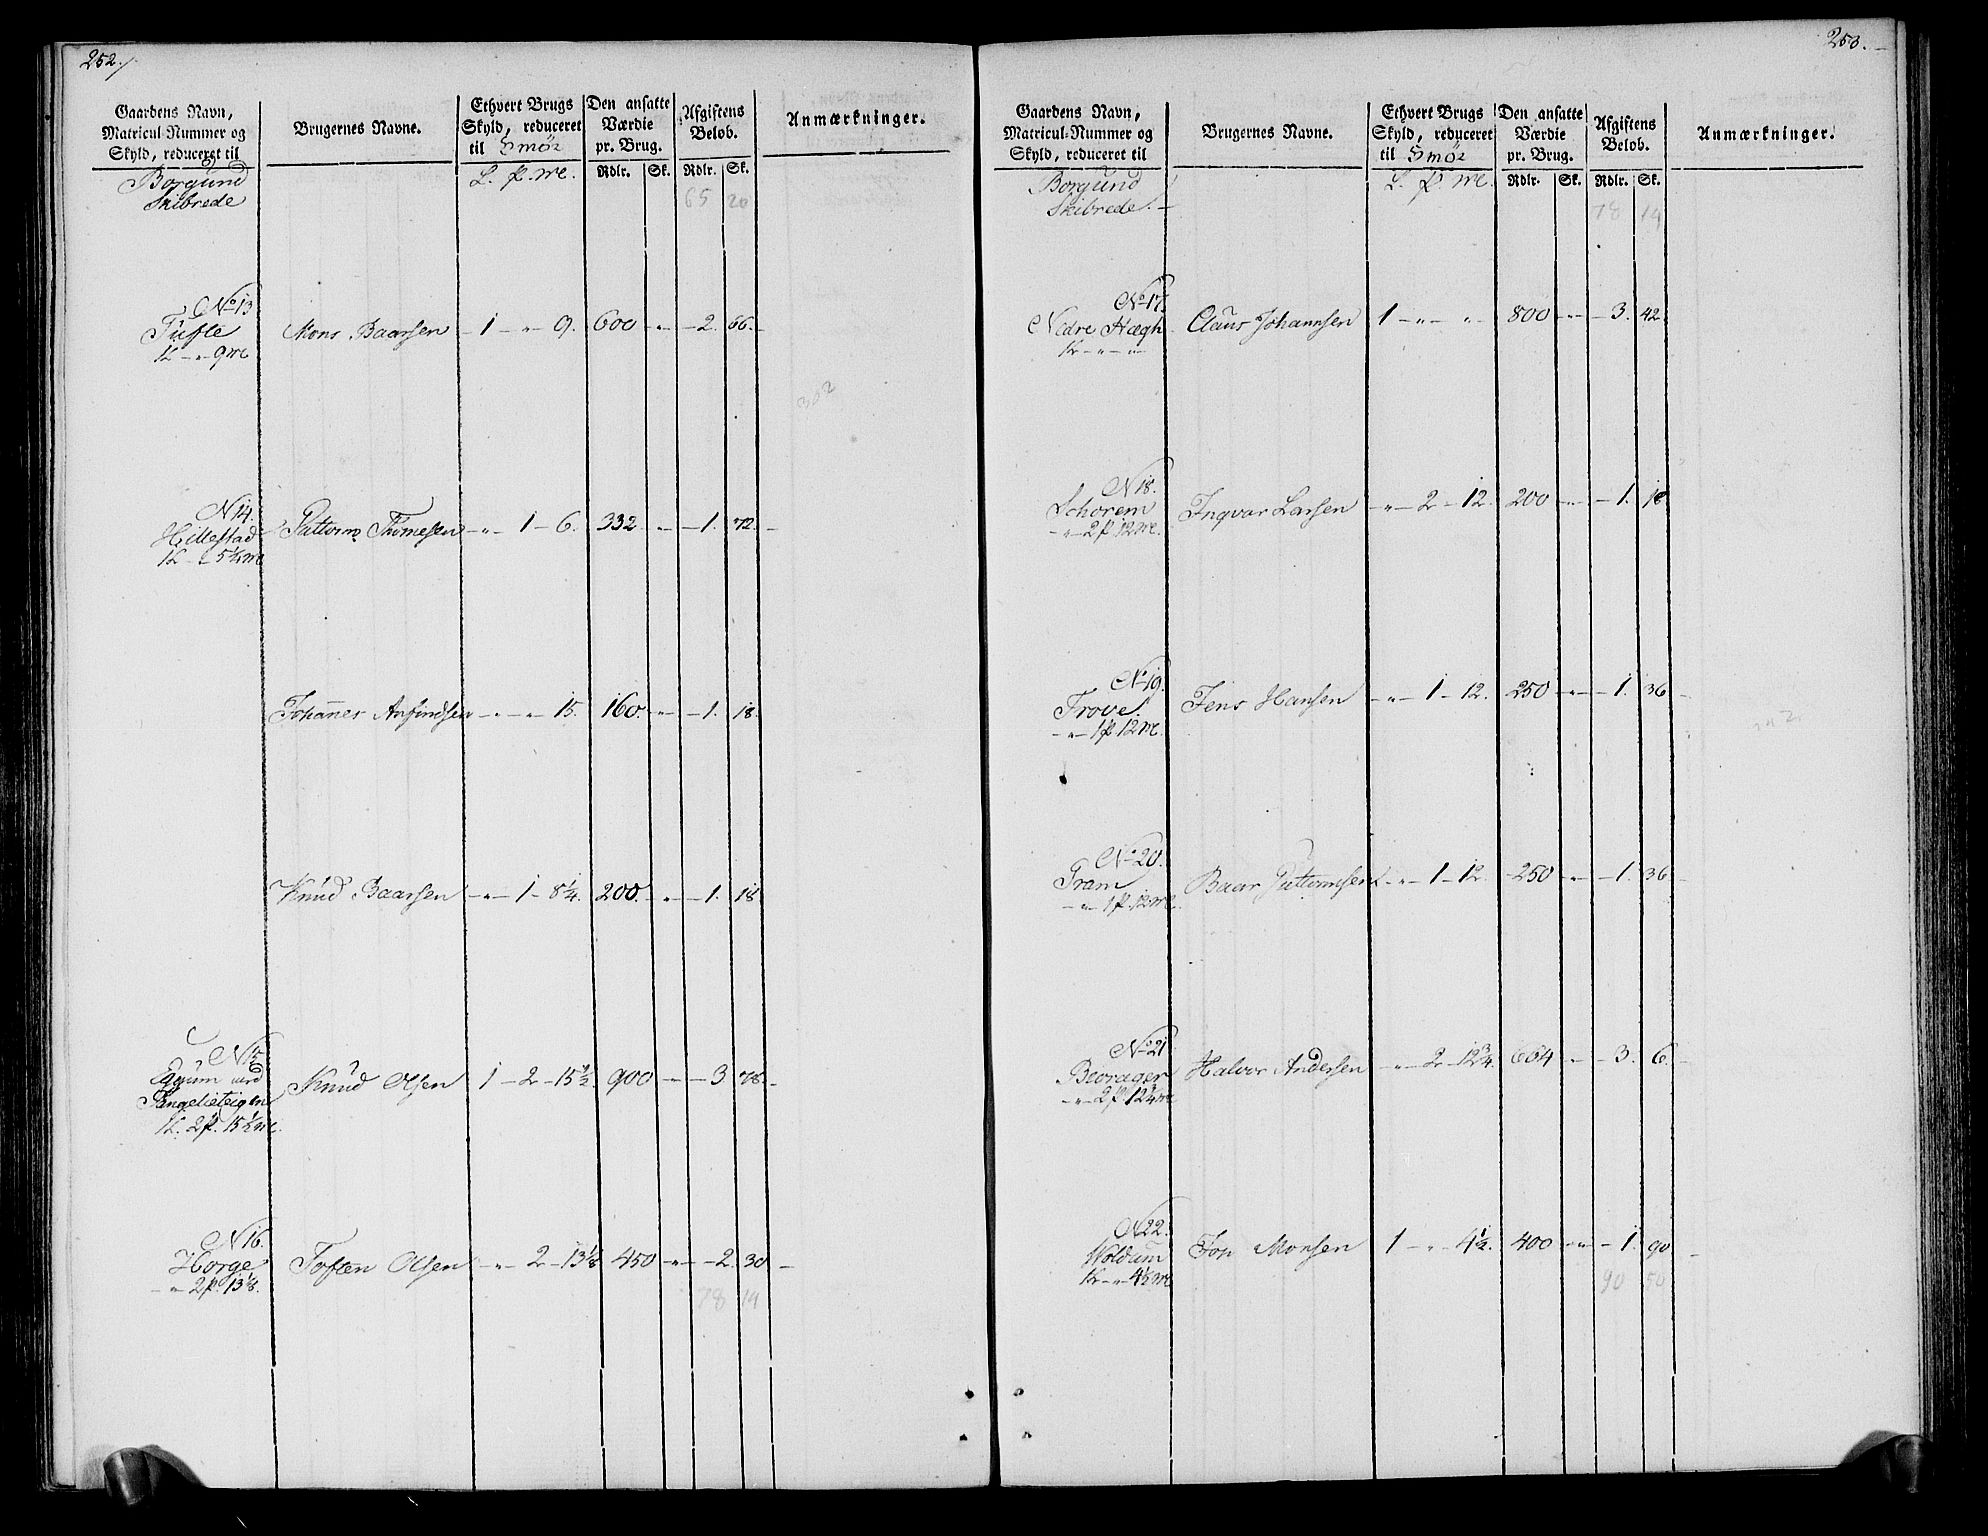 252.
Gaardens Navn, Matricul-Nummer og Skyld, reduceret til
Brugernes Navne.
Ethvert Brugs Skyld, reduceret til Smör
Den ansatte Værdie pr. Brug.
Afgiftens Beløb.
Anmærkninger.
L. p. mk. Rdlr. Sk. Rdlr. Sk.
Borgund
Skibrede
65 20
No 13
Tufte Mons Baarsen 1 - " 9. 600 " - 2. 66.
1L - " 9 mk
302
N 14.
Hillestad Guttorm Thomesen - " - 1 - 6. 332 " - 1. 72. -
1L - " 5¼ mk
Johannes Anfindsen - " - " 15. 160. " - 1. 18.
Knud Baarsen - " - 1 - 8¼. 200. " - 1. 18
N 15
Eggum
Knud Olsen 1 - 2 - 15½ 900 " - 3 78. -
1L. 2p. 15½ mk.
N 16.
Horge Tosten Olsen - " - 2 - 13⅛ 450 " - 2. 30 -
- " - 2p. 13⅛.
78 14
253.
Gaardens Navn, Matricul-Nummer og Skyld, reduceret til
Brugernes Navne.
Ethvert Brugs Skyld, reduceret til Smör
Den ansatte Værdie pr. Brug.
Afgiftens Beløb.
Anmærkninger.
L. p. mk. Rdlr. Sk. Rdlr. Sk.
Borgund
Skibrede. -
78 14
No 17.
Nedre Hægh Claus Johannsen 1 - " - " 800 " - 3. 42.
1L - " - "
N 18.
Schorem Ingvar Larsen - " - 2 - 12. 200 " - 1. 18
- " - 2p 12 mk.
No 19.
Trove. Jens Hansen - " - 1 - 12. 250 " - 1. 36 -
- " - 1p 12 mk.
No 20.
Gram Baar Guttormsen - " - 1 - 12. 250 " - 1. 36 -
- " - 1p. 12 mk.
No 21
Halvor Andersen - " - 2 - 12¾. 664 " - 3. 6. -
- " - 2p. 12¾ mk
N 22.
Woldum Jon Monsen 1 - " 4½. 400 " - 1. 90 -
1L - " 4½ mk
90 50